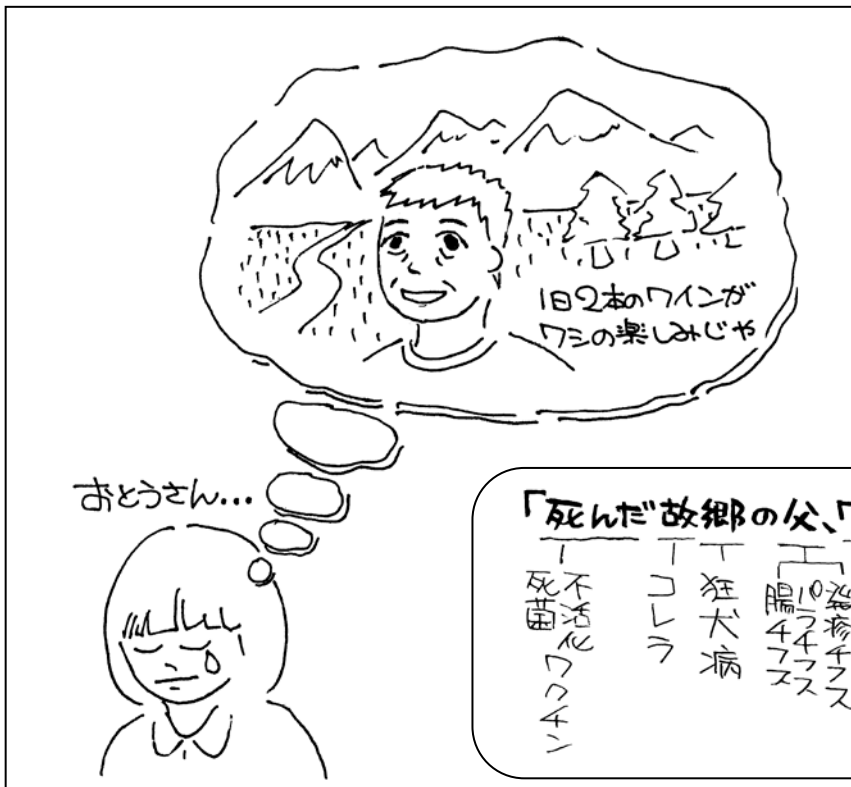 1日2本のワインが
ワシの楽しみじゃ
おとうさん…
「死んだ故郷の父、「
不活化
死菌
ワクチン
コレラ
狂犬病
発疹チフス
パラチフス
腸チフス